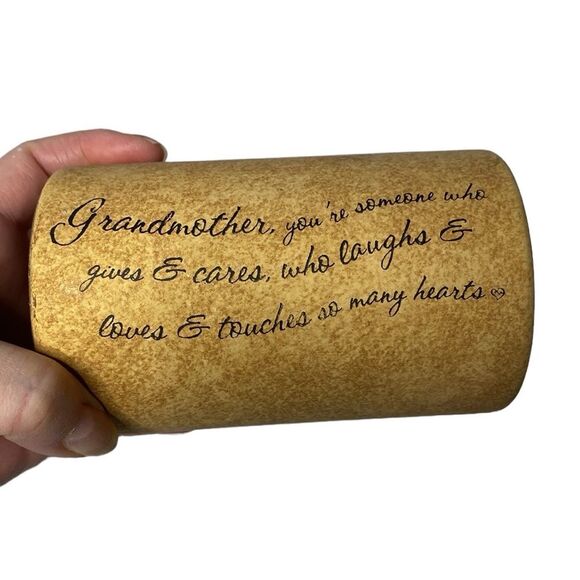 Grandmother, you're someone who
gives & cares, who laughs &
loves & touches so many hearts